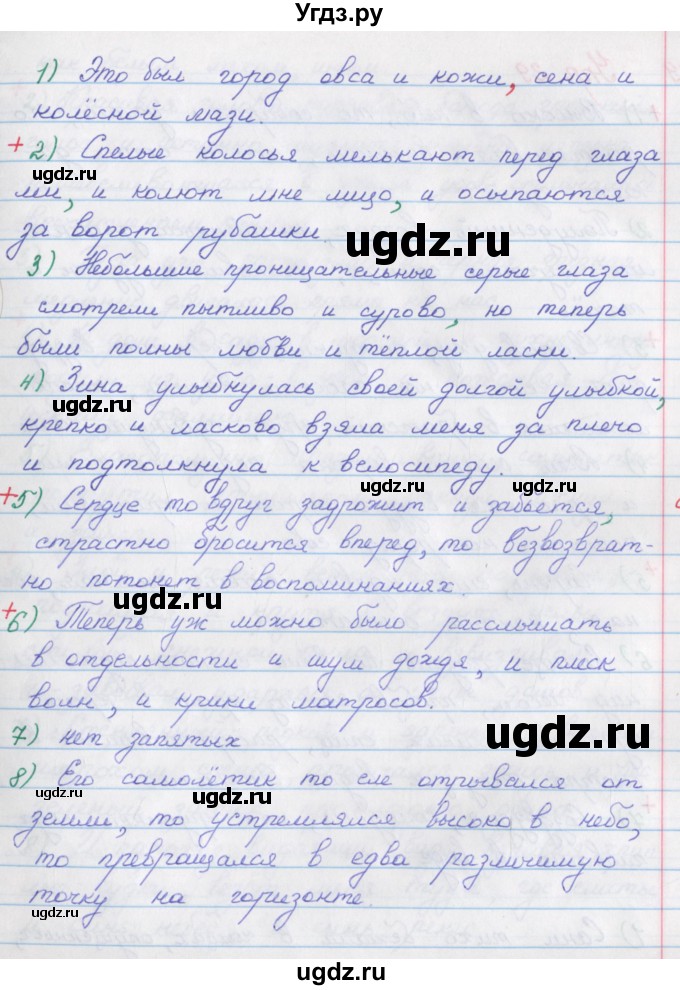 Угдз.ру
1) Это был город овса и кожи, сена и
колёсной мази.
+2) Спелые колосья мелькают перед глаза
ми, и колют мне лицо, и осыпаются
за ворот рубашки
3) Небольшие проницательные серые глаза
смотрели пытливо и сурово, но теперь
были полны любви и тёплой ласки.
4) Зина улыбнулась своей долгой улыбкой,
крепко и ласково взяла меня за плечо
и подтолкнула к велосипеду.
+5) Сердце то вдруг задрожит и забьется,
страстно бросится вперед, то безвозврат-
но потонет в воспоминаниях.
+6) Теперь уж можно было расслышать
в отдельности и шум дождя, и плеск
волн, и крики матросов.
7) нет запятых
8) Его самолётик то еле отрывался от
земли, то устремлялся высоко в небо,
то превращался в едва различимую
точку на горизонте.
ugdz.ru
ugdz.ru
ugdz.ru
ugdz.ru
ugdz.ru
ugdz.ru
ugdz.ru
ugdz.ru
ugdz.ru
ugdz.ru
ugdz.ru
ugdz.ru